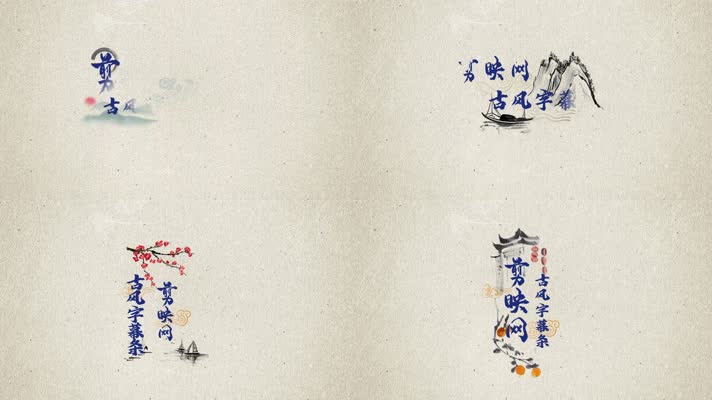 剪
古风
映网
古风字幕
剪映网
古风字幕条
剪映网
古风字幕条